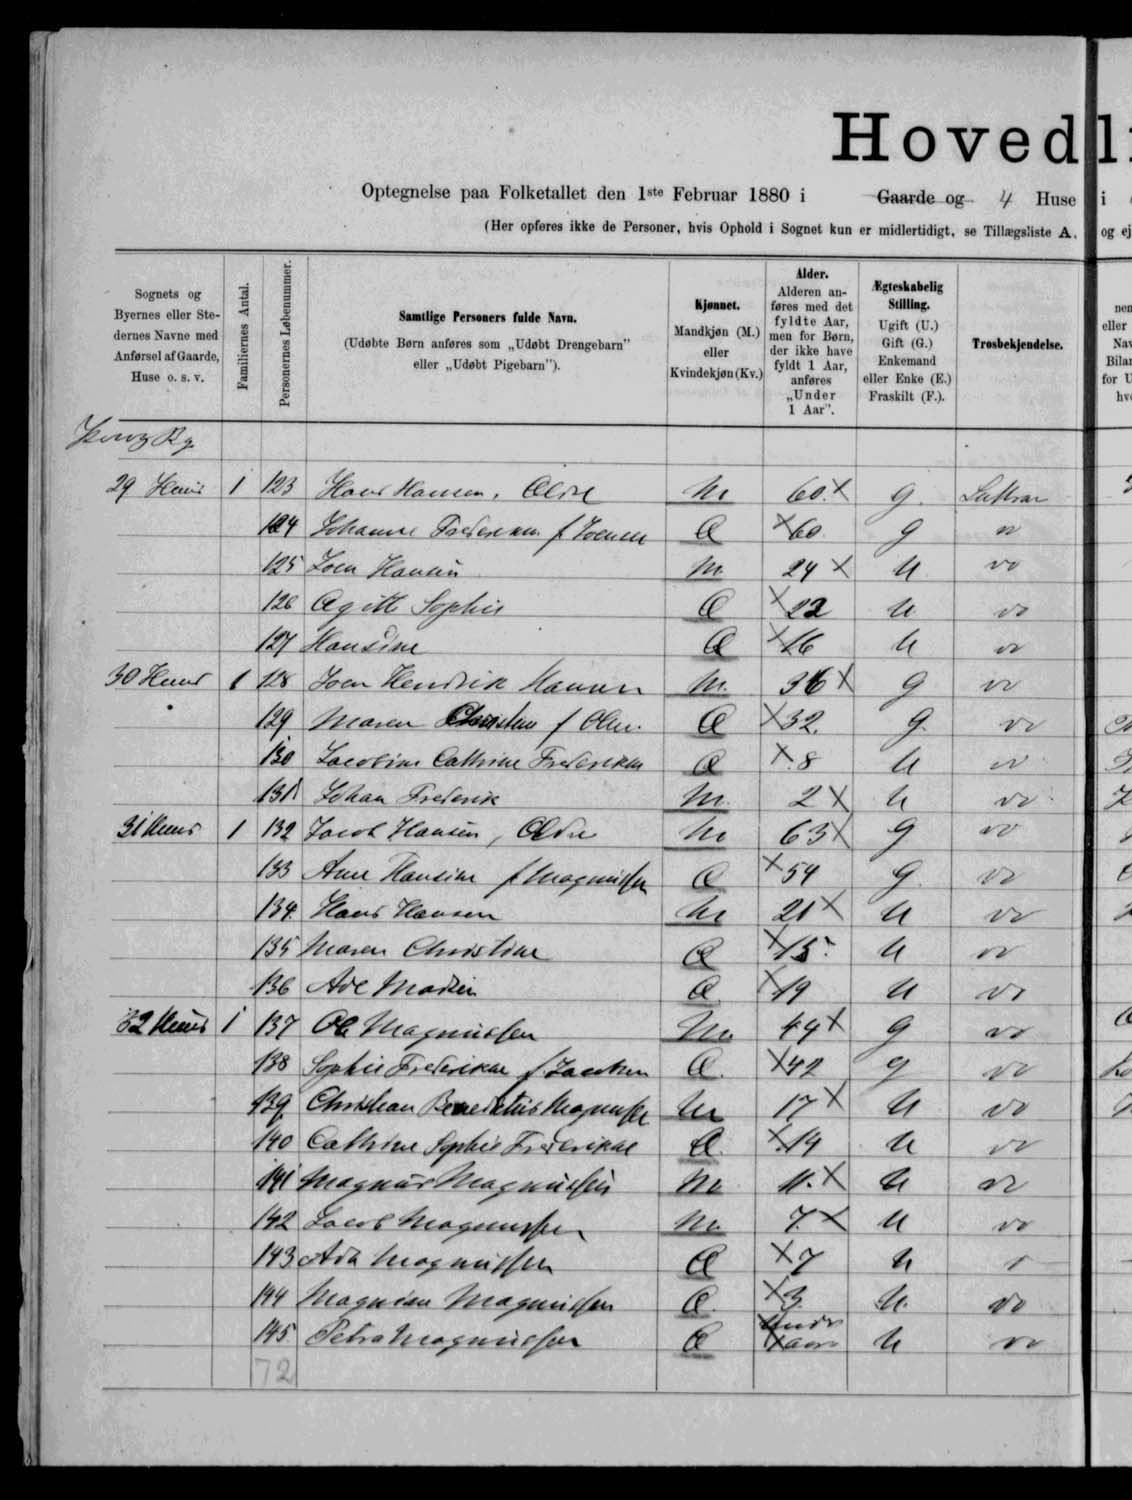 Hovedli
Optegnelse paa Folketallet den 1ste Februar 1880 i Gaarde og 4 Huse i
(Her opføres ikke de Personer, hvis Ophold i Sognet kun er midlertidigt, se Tillægsliste A, og ej
Sognets og Byernes eller Stedernes Navne med Anførsel af Gaarde, Huse o. s. v.
Familiernes Antal.
Personernes Løbenummer.
Samtlige Personers fulde Navn.
(Udøbte Børn anføres som „Udøbt Drengebarn" eller „Udøbt Pigebarn").
Kjønnet.
Mandkjøn (M.) eller Kvindekjøn (Kv.)
Alder.
Alderen anføres med det fyldte Aar, men for Børn, der ikke have fyldt 1 Aar, anføres „Under 1 Aar".
Ægteskabelig Stilling.
Ugift (U.) Gift (G.) Enkemand eller Enke (E.) Fraskilt (F.).
Trosbekjendelse.
29 Huus 1 123 Hans Hansen, Ældre M 60 X G. Luthran
124 Johanne Frederikke f Joensen Q X 60 G
125 Joen Hansen M 24 X U do
126 Sophie Q X 22 U do
127 Hansine Q X 16 U do
30 Huus 1 128 Joen Hendrik Hansen M. 36 X G do
129 Maren f Olsen Q X 32. G. do
130 Jacobine Cathrine Frederikke Q X 8 U do
131 Johan Frederik M. 2 X U do
31 Huus 1 132 Jacob Hansen, Ældre M 63 X G do
133 Anne Hansine f Magnussen Q X 54 G. do
134 Hans Hansen M 21 X U do
135 Maren Christine Q X 15. U do
136 Q X 19 U do
32 Huus 1 137 Ole Magnussen M. 44 X G do
138 Sophie Frederikke f Jacobsen Q. X 42 G do
139 Christian Benedictus Magnussen M 17 X U do
140 Cathrine Sophie Frederikke Q. X 14 U do
141 Magnus Magnussen M 11. X U do
142 Jacob Magnussen M. 7. X U do
143 Magnussen Q X 7 U
144 Magnussen Q. X 3. U. do
145 Petra Magnussen Q X Under 1 aar U do
72